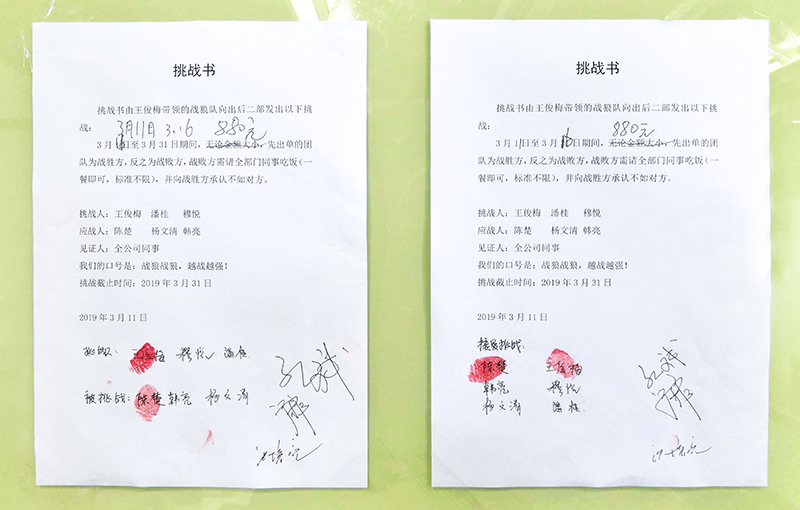 挑战书
挑战书由王俊梅带领的战狼队向出后二部发出以下挑
战：
3月11日 3.16 880元
3 月 日至 3 月 31 日期间，无论金额大小，先出单的团
队为战胜方，反之为战败方，战败方需请全部门同事吃饭（一
餐即可，标准不限），并向战胜方承认不如对方。
挑战人：王俊梅 潘桂 穆悦
应战人：陈楚 杨文清 韩亮
见证人：全公司同事
我们的口号是：战狼战狼，越战越强！
挑战截止时间：2019 年 3 月 31 日
2019 年 3 月 11 日
挑战: 王俊梅 穆悦 潘桂
被挑战: 陈楚 韩亮 杨文清
挑战书
挑战书由王俊梅带领的战狼队向出后二部发出以下挑
战：
880元
3 月 11日至 3 月 16 日期间，无论金额大小，先出单的
团队为战胜方，反之为战败方，战败方需请全部门同事吃饭（一
餐即可，标准不限），并向战胜方承认不如对方。
挑战人：王俊梅 潘桂 穆悦
应战人：陈楚 杨文清 韩亮
见证人：全公司同事
我们的口号是：战狼战狼，越战越强！
挑战截止时间：2019 年 3 月 31 日
2019 年 3 月 11 日
接受挑战:
陈楚 王俊梅
韩亮 穆悦
杨文清 潘桂